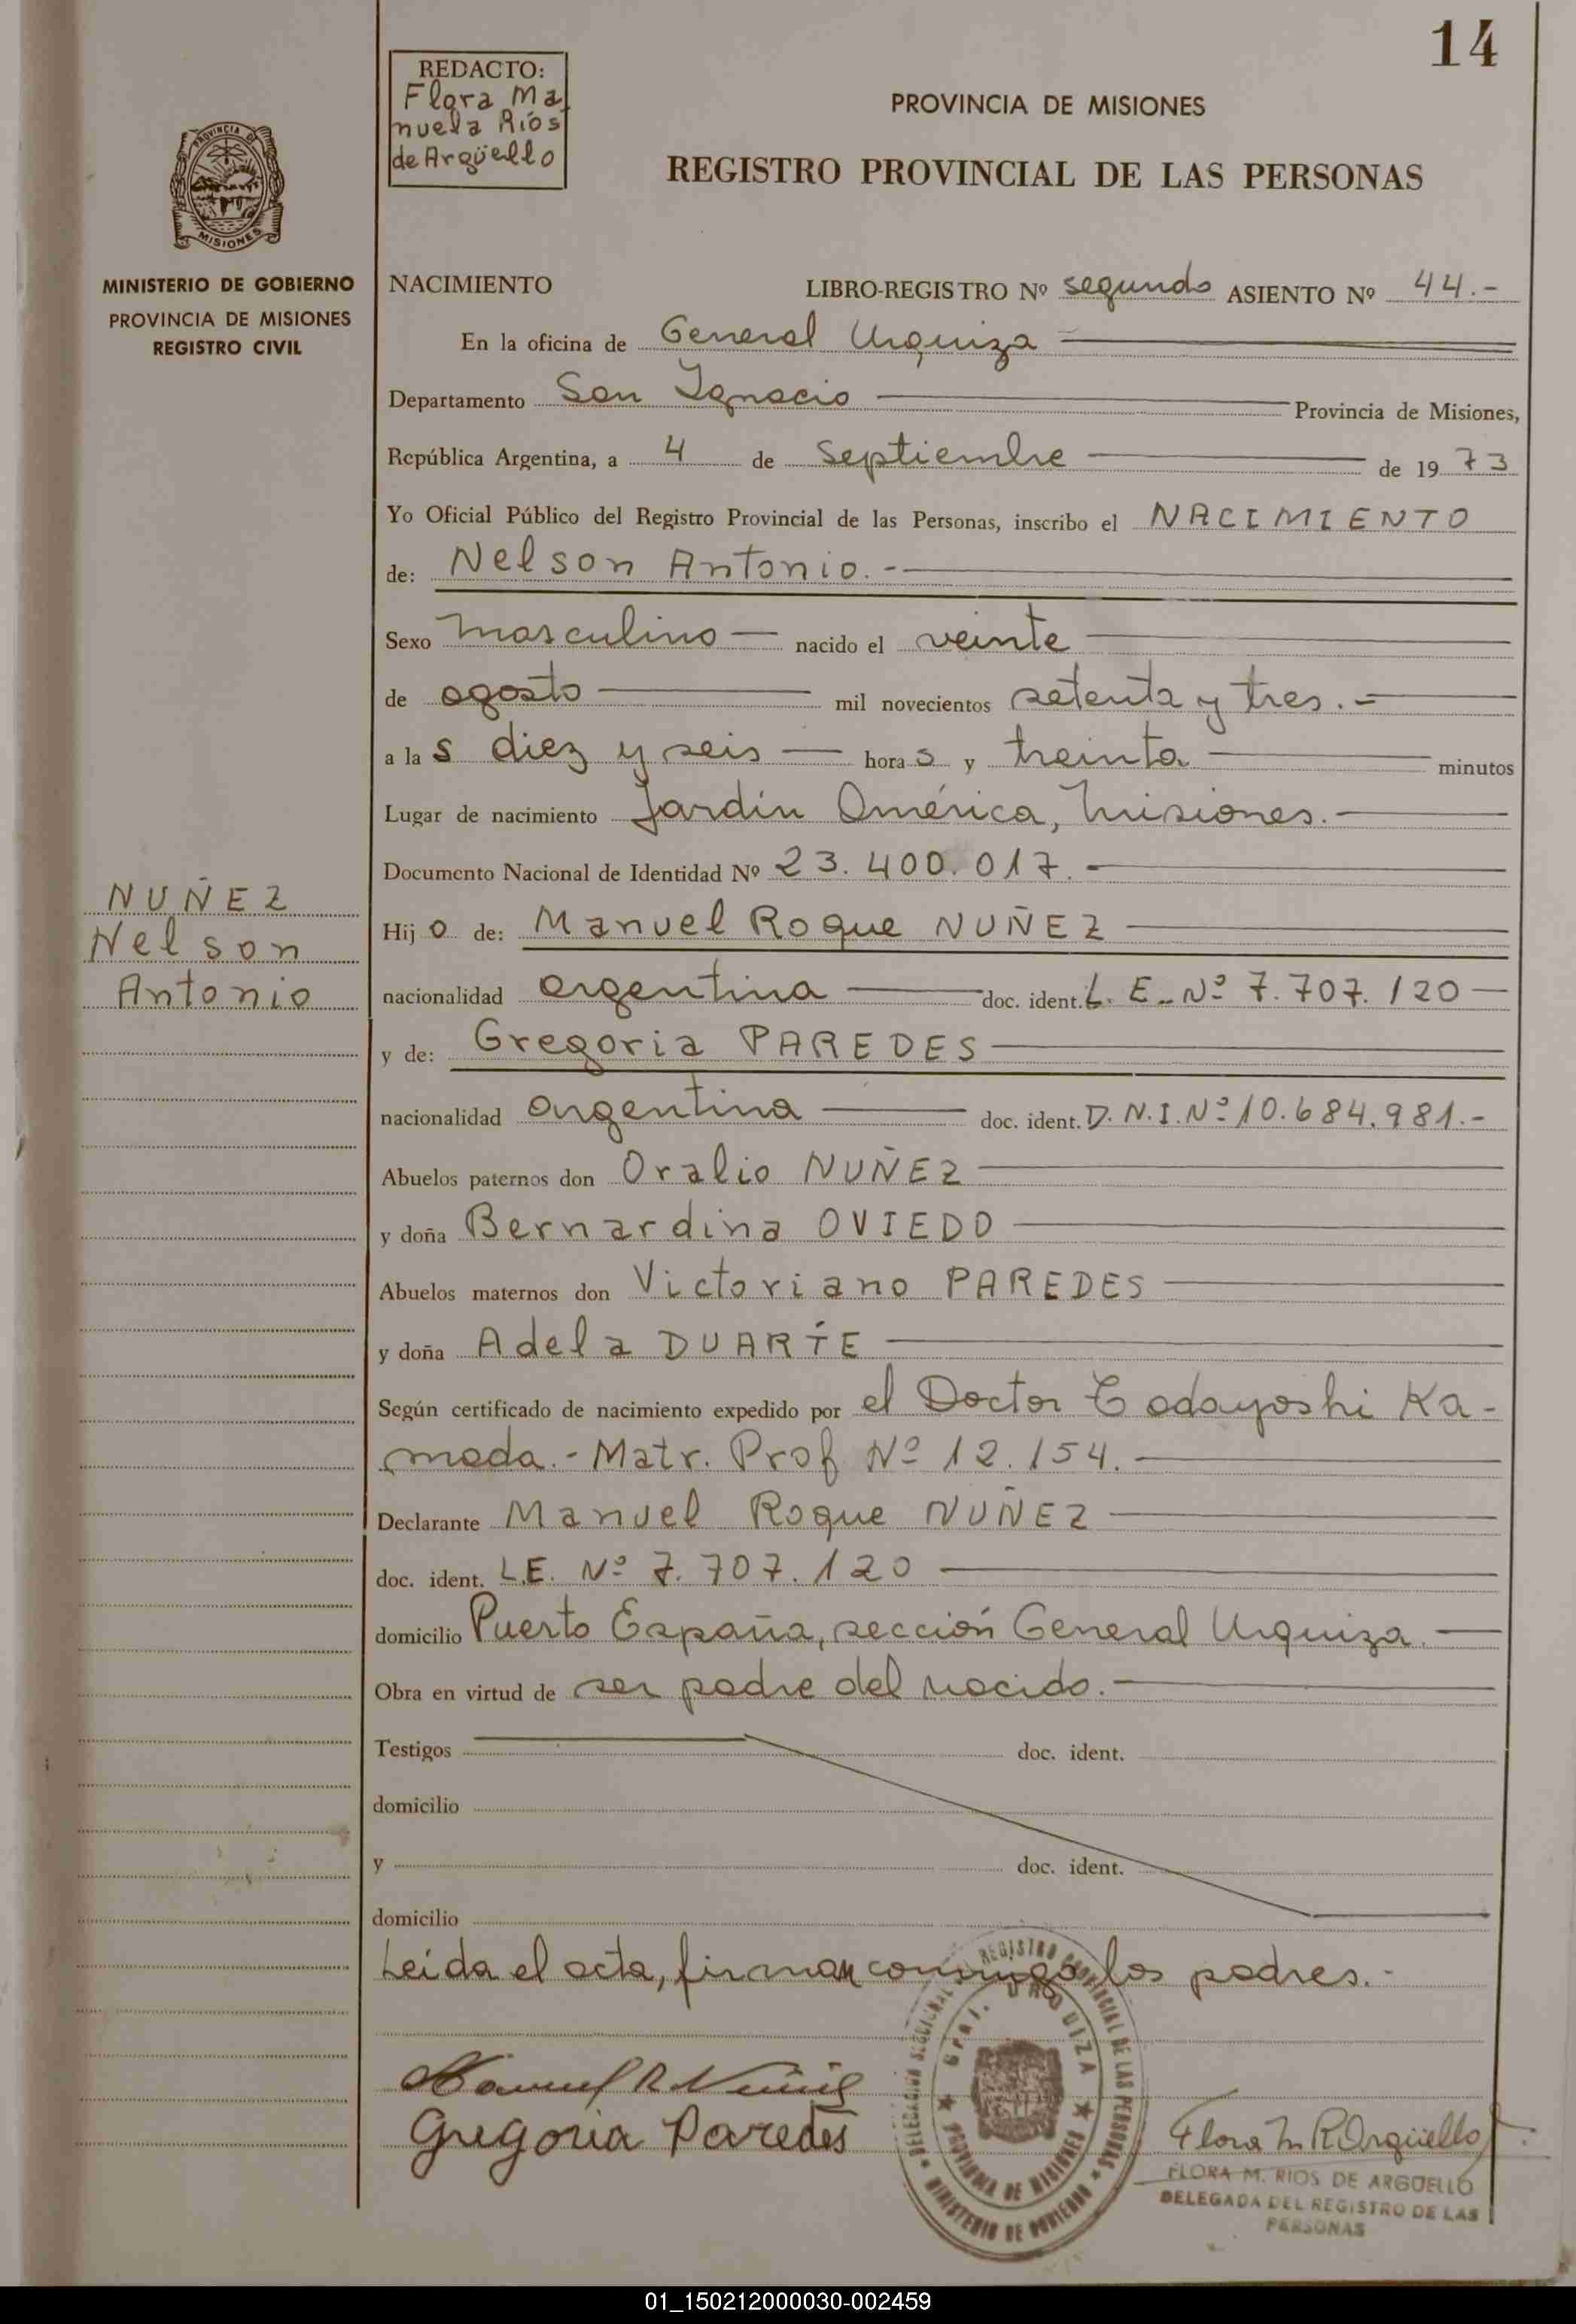 14
REDACTO:
Flora Ma
nuela Ríos
de Argüello
PROVINCIA DE MISIONES
REGISTRO PROVINCIAL DE LAS PERSONAS
PROVINCIA DE
MISIONES
MINISTERIO DE GOBIERNO
PROVINCIA DE MISIONES
REGISTRO CIVIL
NACIMIENTO LIBRO-REGISTRO Nº segundo ASIENTO Nº 44.-
En la oficina de General Urquiza
Departamento San Ignacio Provincia de Misiones,
República Argentina, a 4 de septiembre de 1973
Yo Oficial Público del Registro Provincial de las Personas, inscribo el NACIMIENTO
de: Nelson Antonio.-
Sexo masculino nacido el veinte
de agosto mil novecientos setenta y tres.-
a las diez y seis horas y treinta minutos
Lugar de nacimiento Jardín América, Misiones.
Documento Nacional de Identidad Nº 23.400.017.-
NUÑEZ
Nelson
Antonio
Hijo de: Manuel Roque NUÑEZ
nacionalidad argentina doc. ident. L. E. Nº 7.707.120
y de: Gregoria PAREDES
nacionalidad argentina doc. ident. D.N.I. Nº 10.684.981.-
Abuelos paternos don Oralio NUÑEZ
y doña Bernardina OVIEDO
Abuelos maternos don Victoriano PAREDES
y doña Adela DUARTE
Según certificado de nacimiento expedido por el Doctor Tadayoshi Ka-
mada.- Matr. Prof Nº 12.154.
Declarante Manuel Roque NUÑEZ
doc. ident. L.E. Nº 7.707.120
domicilio Puerto España, sección General Urquiza.
Obra en virtud de ser padre del nacido.
Testigos doc. ident.
domicilio
y doc. ident.
domicilio
Leída el acta, firman conmigo los padres.-
DELEGACION SECCIONAL REGISTRO PROVINCIAL DE LAS PERSONAS
MINISTERIO DE GOBIERNO
Gral. URQUIZA
PROVINCIA DE MISIONES
Manuel R Nuñez
Gregoria Paredes
Flora M R Argüello
FLORA M. RIOS DE ARGÜELLO
DELEGADA DEL REGISTRO DE LAS
PERSONAS
01_150212000030-002459